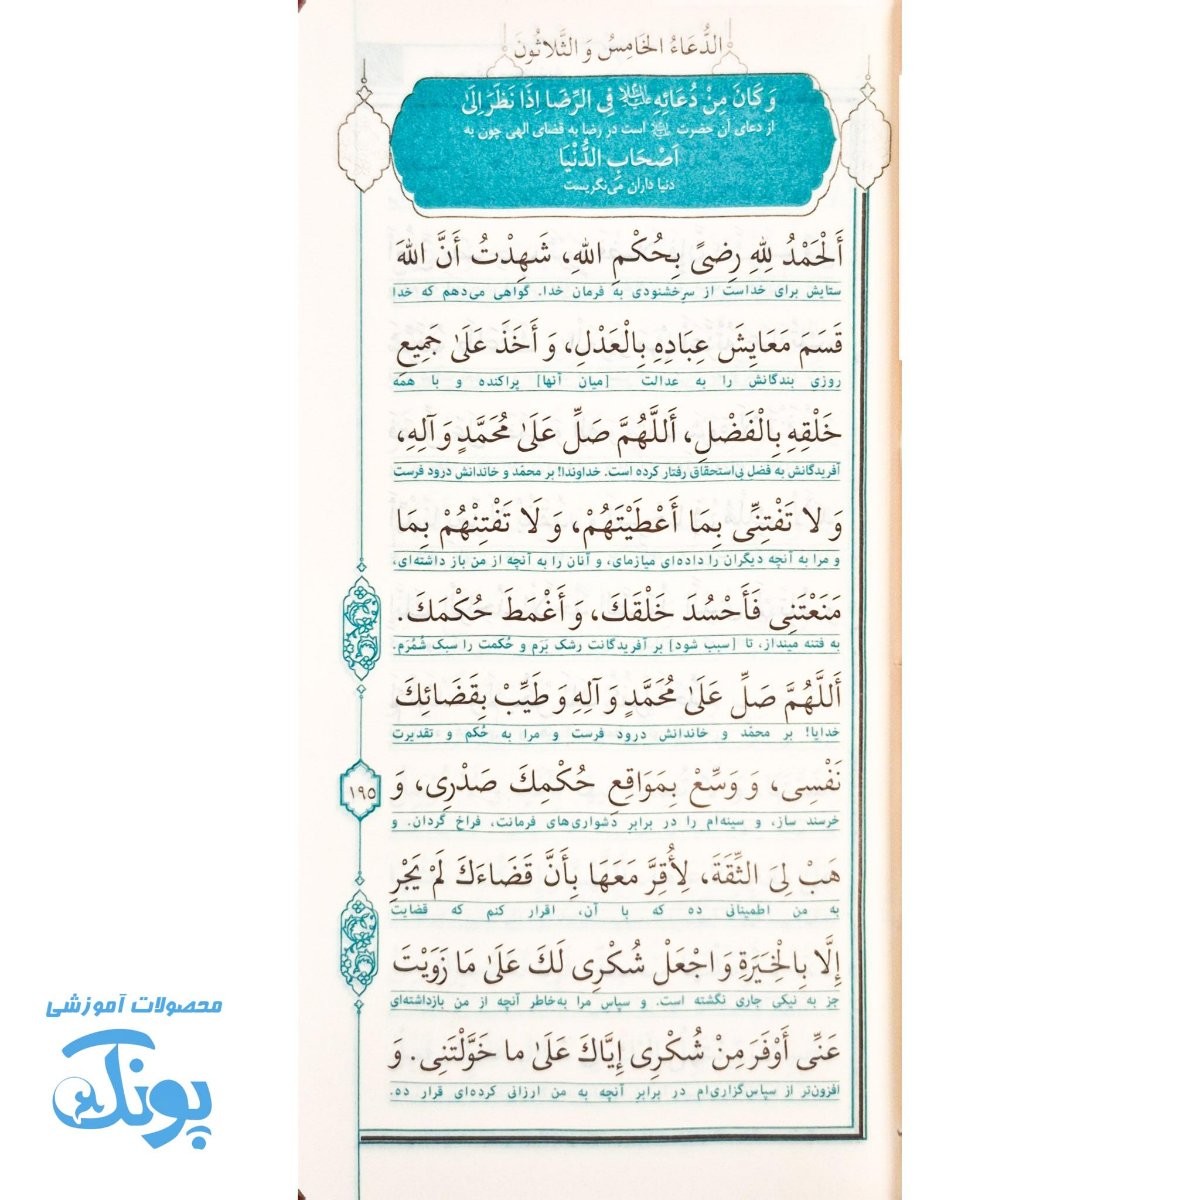 الدُّعَاءُ الخَامِسُ وَ الثَّلَاثُونَ
وَ كَانَ مِنْ دُعَائِهِ عليه‌السلام فِي الرِّضَا إِذَا نَظَرَ إِلَى
از دعای آن حضرت است در رضا به قضای الهی چون به
أَصْحَابِ الدُّنْيَا
دنیا داران می‌نگریست
أَلْحَمْدُ لِلّٰهِ رِضىً بِحُكْمِ اللّٰهِ، شَهِدْتُ أَنَّ اللّٰهَ
ستایش برای خداست از سرِخشنودی به فرمان خدا. گواهی می‌دهم که خدا
قَسَمَ مَعَايِشَ عِبَادِهِ بِالْعَدْلِ، وَ أَخَذَ عَلَىٰ جَمِيعِ
روزیِ بندگانش را به عدالت [میان آنها] پراکنده و با همه
خَلْقِهِ بِالْفَضْلِ، أَللَّهُمَّ صَلِّ عَلَىٰ مُحَمَّدٍ وَ آلِهِ،
آفریدگانش به فضل بی‌استحقاق رفتار کرده است. خداوندا! بر محمّد و خاندانش درود فرست
وَ لا تَفْتِنِّى بِمَا أَعْطَيْتَهُمْ، وَ لَا تَفْتِنْهُمْ بِمَا
و مرا به آنچه دیگران را داده‌ای میازمای، و آنان را به آنچه از من باز داشته‌ای،
مَنَعْتَنِى فَأَحْسُدَ خَلْقَكَ، وَ أَغْمَطَ حُكْمَكَ.
به فتنه مینداز، تا [سبب شود] بر آفریدگانت رشک بَرَم و حُکمت را سبک شُمُرَم.
أَللَّهُمَّ صَلِّ عَلَىٰ مُحَمَّدٍ وَ آلِهِ وَ طَيِّبْ بِقَضَائِكَ
خدایا! بر محمّد و خاندانش درود فرست و مرا به حُکم و تقدیرت
نَفْسِى، وَ وَسِّعْ بِمَوَاقِعِ حُكْمِكَ صَدْرِى، وَ
خرسند ساز، و سینه‌ام را در برابرِ دشواری‌های فرمانت، فراخ گردان. و
۱۹۵
هَبْ لِىَ الثِّقَةَ، لِأُقِرَّ مَعَهَا بِأَنَّ قَضَاءَكَ لَمْ يَجْرِ
به من اطمینانی ده که با آن، اقرار کنم که قضایت
إِلَّا بِالْخِيَرَةِ وَ اجْعَلْ شُكْرِى لَكَ عَلَىٰ مَا زَوَيْتَ
جز به نیکی جاری نگشته است. و سپاس مرا به‌خاطر آنچه از من بازداشته‌ای
عَنِّى أَوْفَرَ مِنْ شُكْرِى إِيَّاكَ عَلَىٰ ما خَوَّلْتَنِى. وَ
افزون‌تر از سپاس‌گزاری‌ام در برابرِ آنچه به من ارزانی کرده‌ای قرار ده.
محصولات آموزشی
پونک